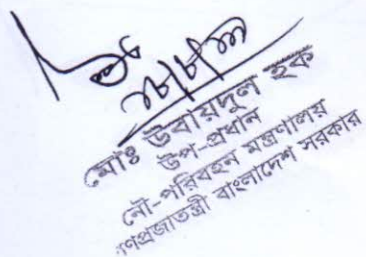 মোঃ উবায়দুল হক
উপ-প্রধান
নৌ-পরিবহন মন্ত্রণালয়
গণপ্রজাতন্ত্রী বাংলাদেশ সরকার